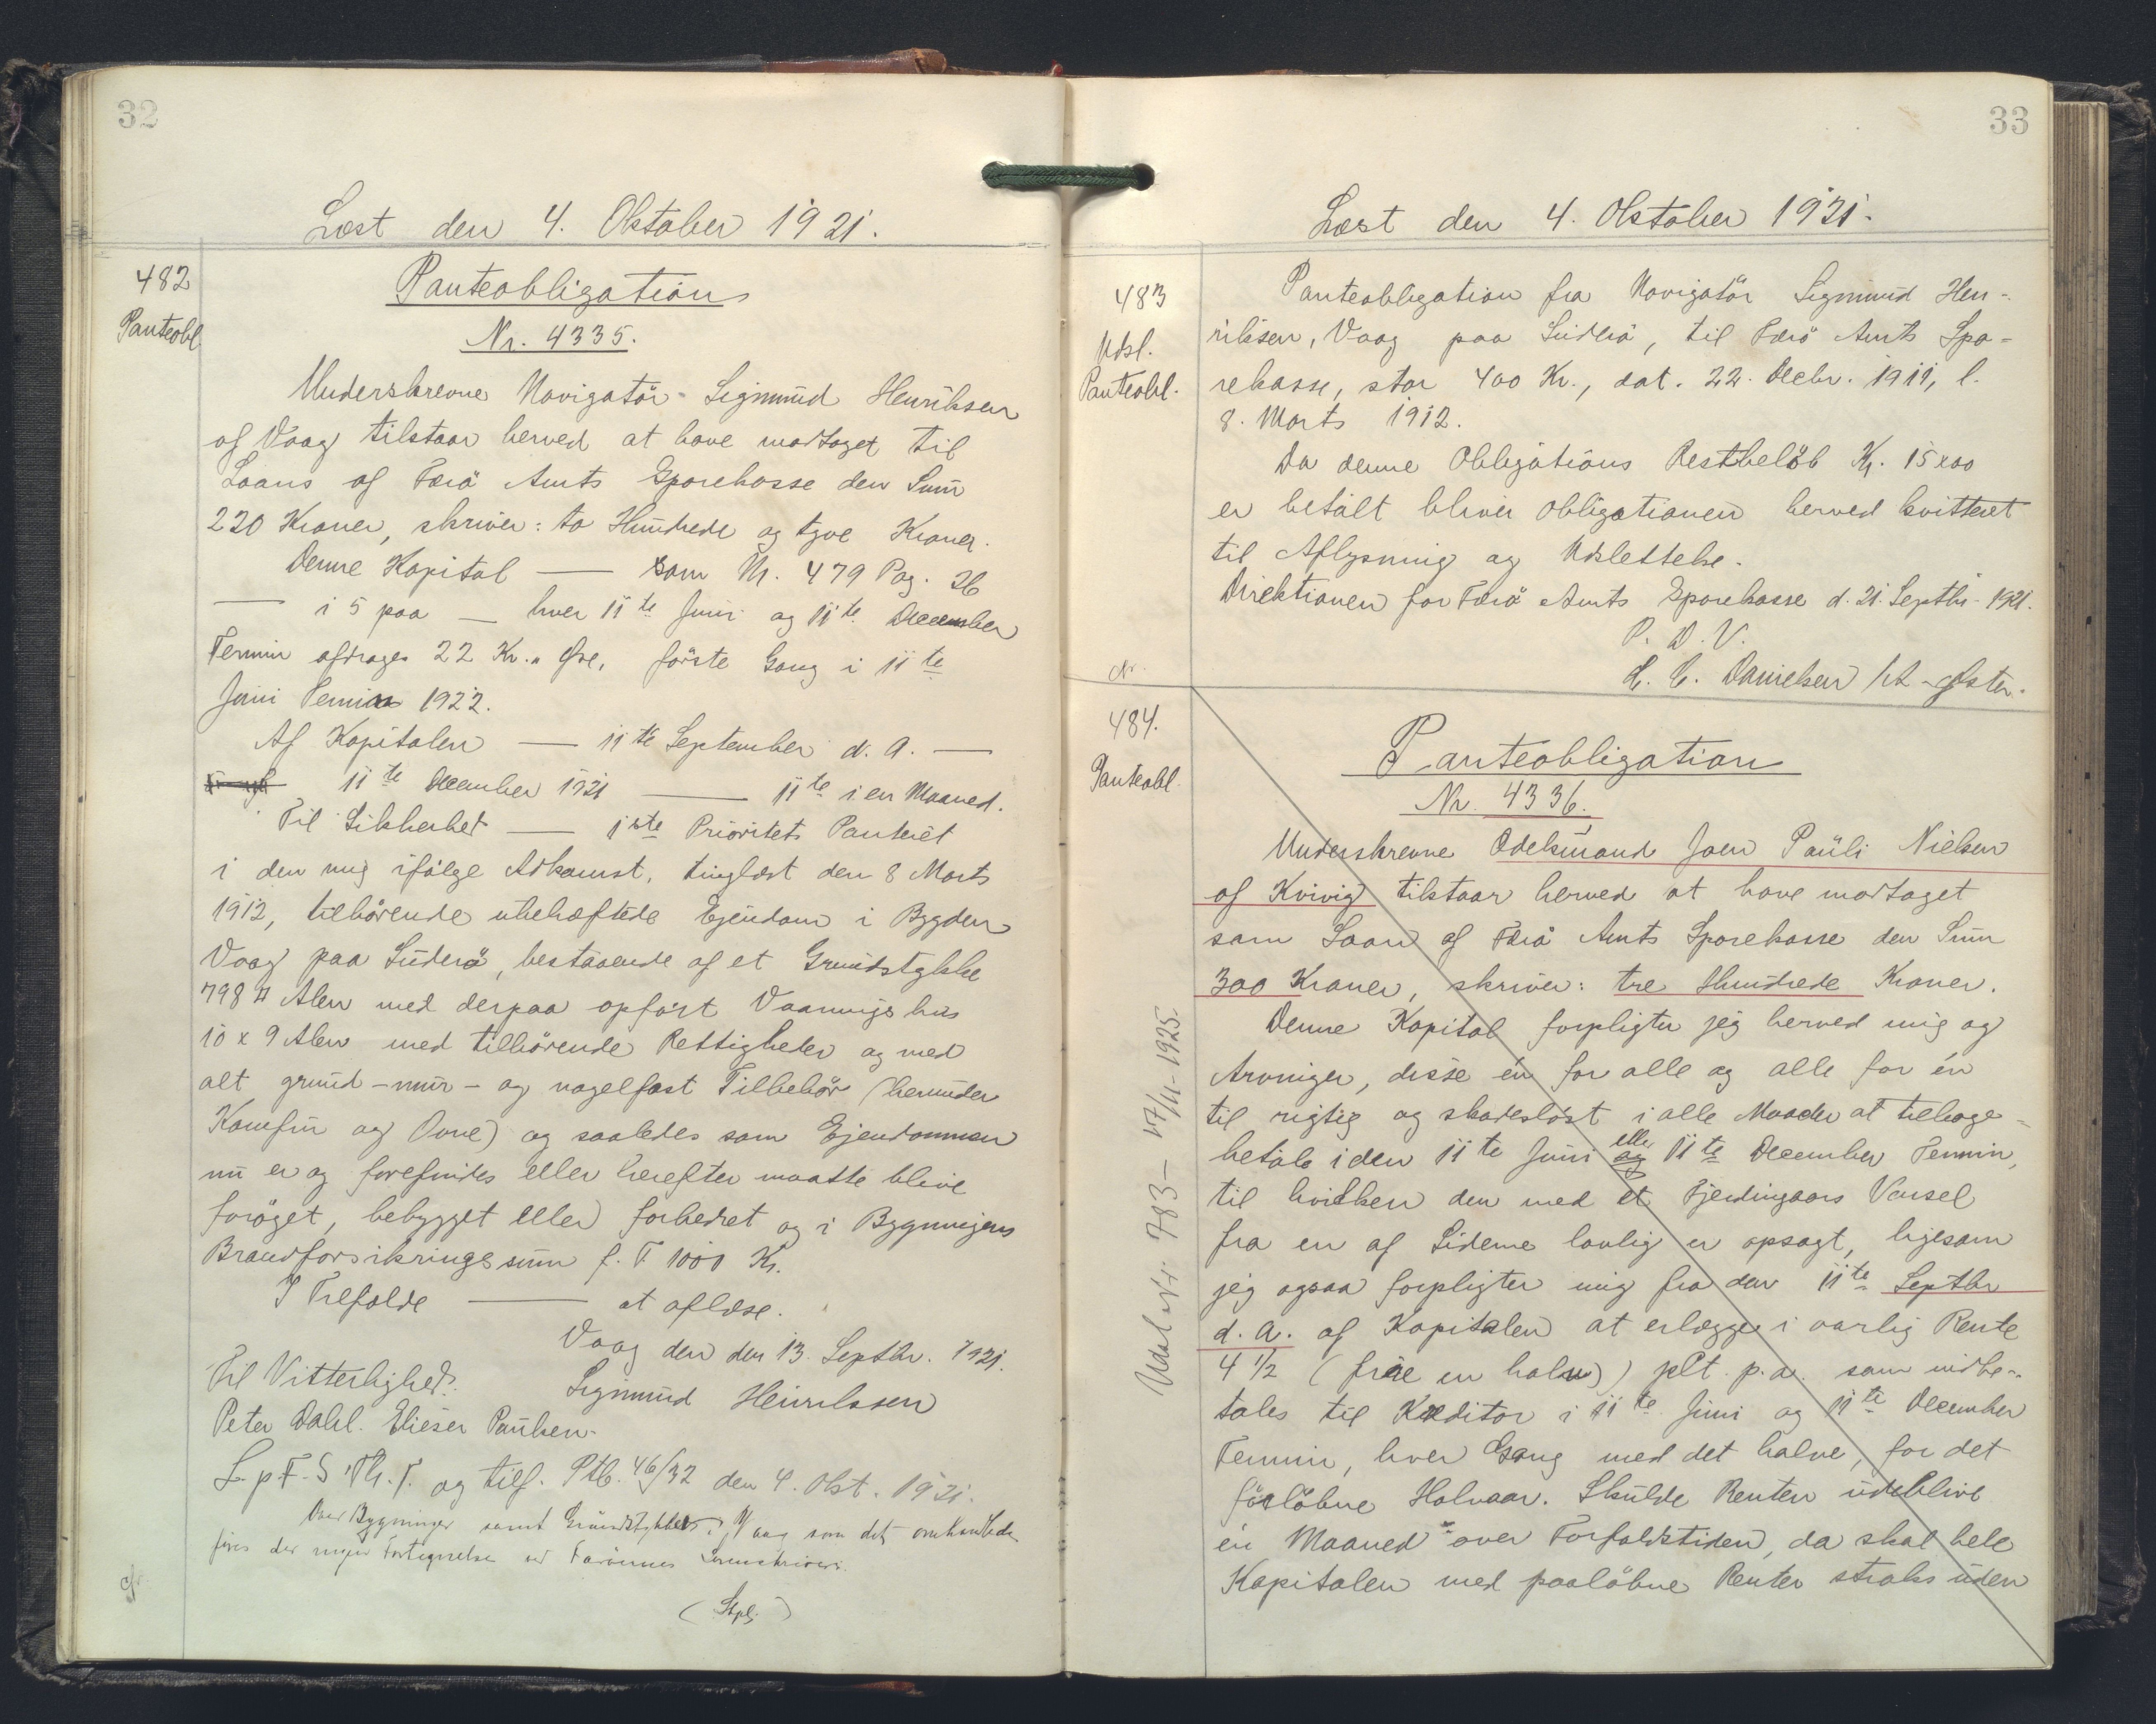 32
Læst den 4. Oktober 1921.
482
Panteobl.
Panteobligation
Nr. 4335.
Underskrevne Navigatör Sigmund Henriksen
af Vaag tilstaar herved at have modtaget til
Laans af Færö Amts Sparekasse den Sum
220 Kroner, skriver: to Hundrede og tyve Kroner.
Denne Kapital — som Nr. 479 Pag. 26
— i 5 paa — hver 11te Juni og 11te December
Termin afdrages 22 Kr. " Øre, förste Gang i 11te
Juni Termin 1922.
Af Kapitalen — 11te September d. A. —
11te December 1921 — 11te i en Maaned.
Til Sikkerhet — 1ste Prioritets Panteret
i den mig ifölge Adkomst, tinglæst den 8 Marts
1912, tilhörende ubehæftede Ejendom i Bygden
Vaag paa Suderö, bestaaende af et Grundstykke
798 □ Alen med derpaa opfört Vaaningshus
10 x 9 Alen med tilhörende Rettigheder og med
alt grund- mur- og nagelfast Tilbehör (herunder
Komfur og Ovne) og saaledes som Ejendommen
nu er og forefindes eller herefter maatte blive
foröget, bebygget eller forbedret og i Bygningens
Brandforsikringssum f. T. 1000 Kr.
I Tilfælde — at aflæse.
Vaag den den 13. Septbr. 1921.
Til Vitterlighed: Sigmund Henriksen
Peter Dahl. Elieser Poulsen.
L. p. F. S. Th. T. og tilf. Ptb. 46/32 den 4. Okt. 1921.
Over Bygninger samt Grundstykker i Vaag som det omhandlede
föres der ingen Fortegnelse ved Færöernes Sorenskriveri.
(Stpl.)
33
Læst den 4. Oktober 1921.
483
Udsl.
Panteobl.
Panteobligation fra Navigatör Sigmund Hen-
riksen, Vaag paa Suderö, til Færö Amts Spa-
rekasse, stor 400 Kr., dat. 22. Decbr. 1911, l.
8. Marts 1912.
Da denne Obligations Restbelöb Kr. 15x00
er betalt bliver Obligationen herved kvitteret
til Aflysning og Udslettelse.
Direktionen for Færö Amts Sparekasse d. 21. Septbr. 1921.
P. D. V.
C. Danielsen
484.
Panteobl.
Panteobligation
Nr. 4336.
Underskrevne Odelsmand Joen Pauli Nielsen
af Kvivig tilstaar herved at have modtaget
som Laan af Færö Amts Sparekasse den Sum
300 Kroner, skriver: tre Hundrede Kroner.
Denne Kapital forpligter jeg herved mig og
Arvinger, disse én for alle og alle for én
til rigtig og skadeslöst i alle Maader at tilbage-
betale i den 11te Juni og eller 11te December Termin,
til hvilken den med et Fjerdingaars Varsel
fra en af Siderne lovlig er opsagt, ligesom
jeg ogsaa forpligter mig fra den 11te Septbr
d. A. af Kapitalen at erlægge i aarlig Rente
4 1/2 (fire en halv) pCt. p. a. som indbe-
tales til Kreditor i 11te Juni og 11te December
Termin, hver Gang med det halve, for det
forlöbne Halvaar. Skulde Renten udeblive
én Maaned over Forfaldstiden, da skal hele
Kapitalen med paalöbne Renter straks uden
Udsl Nr. 783 – 17/11-1925.